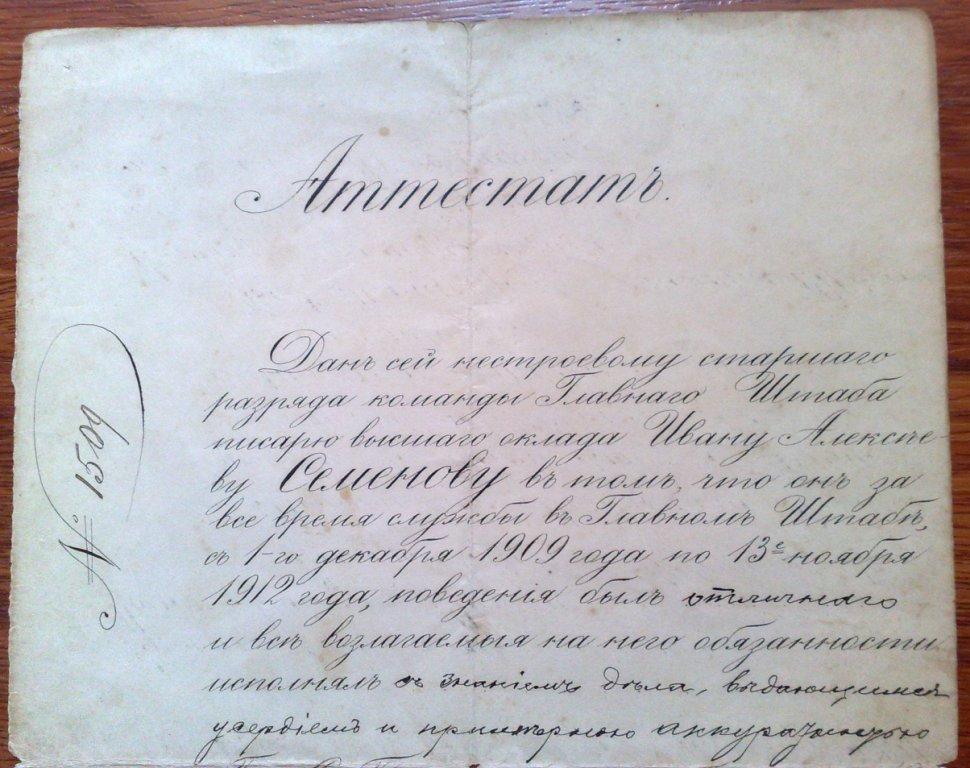 Аттестатъ.
Данъ сей нестроевому старшаго
разряда команды Главнаго Штаба
писарю высшаго оклада Ивану Алексѣе-
ву Семенову въ томъ, что онъ за
все время службы въ Главномъ Штабѣ,
съ 1-го декабря 1909 года по 13е ноября
1912 года, поведенія былъ отличнаго
и всѣ возлагаемыя на него обязанности
исполнялъ съ знаніемъ дѣла, выдающимся
усердіемъ и примѣрною аккуратностью
№ 1509